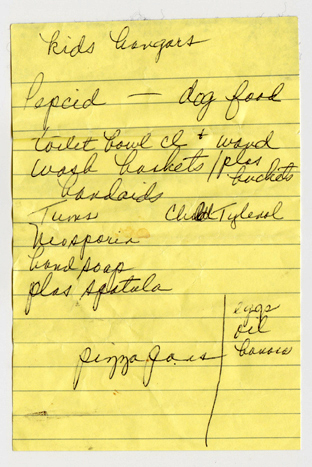 kids hangars
Pepcid — dog food
toilet bowl cl + wand
wash baskets / plas
buckets
bandaids
Tums Child Tylenol
Neosporin
hand soap
plas spatula
eggs
oil
pizza